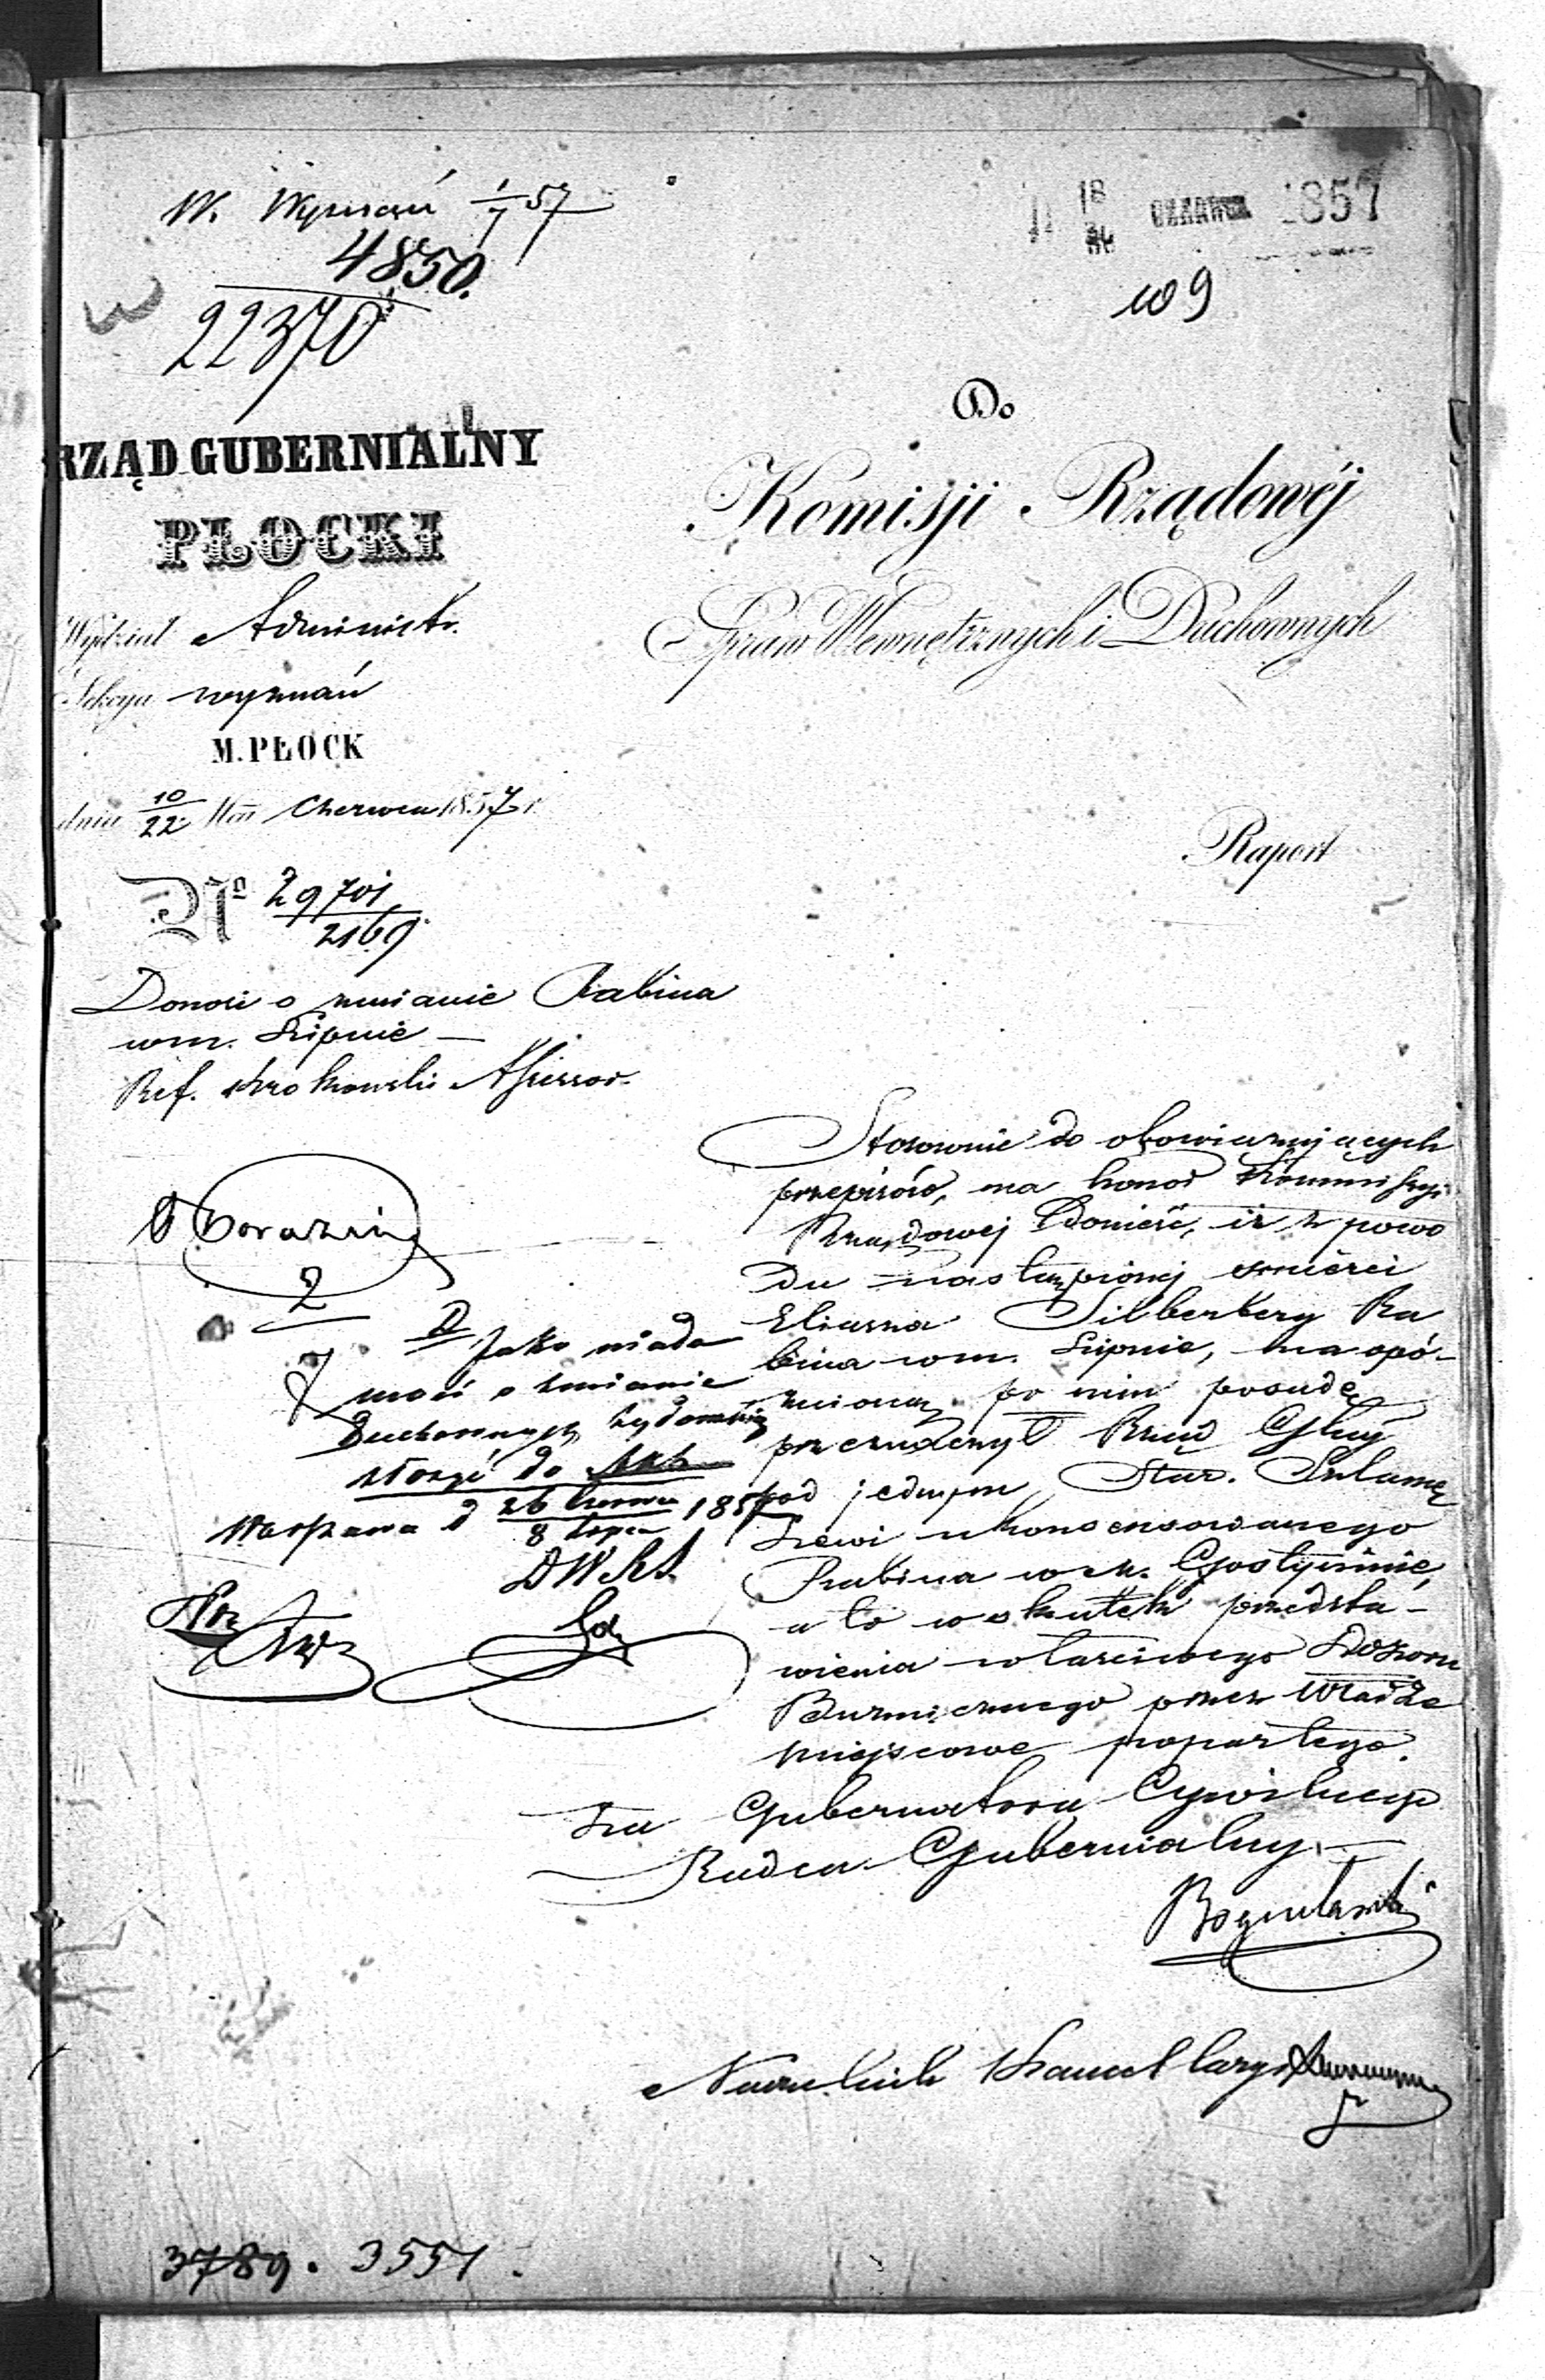 W. Wyznań 1/7 57
4850.
22370
18 CZERWCA 1857
109
RZĄD GUBERNIALNY
PŁOCKI
Wydział Administr.
Sekcya wyznań
M. PŁOCK
dnia 10/22 Mca Czerwca 1857 r.
No 29701/2169
Donosi o zmianie Rabina
w m. Lipnie —
Ref. Krakowski Assessor
Do
Komisji Rządowéj
Spraw Wewnętrznych i Duchownych
Raport
Stosownie do obowiązujących
przepisów, ma honor Kommissyi
Rządowej donieść, iż z powo
du nastąpionej śmierci
Eliasza Silberberg Ra
bina w m. Lipnie, na opó-
znioną po nim posadę
przeznaczył Rząd Gbny
pod jednym Star. Szlamę
Lewi ukonsensowanego
Rabina w m. Gostyninie,
a to w skutek przedsta-
wienia właściwego Dozoru
Bużnicznego przez Władze
miejscowe popartego.
Za Gubernatora Cywilnego
Radca Gubernialny
Naczelnik Kancellaryi
2
D
Jako wiado
mość o zmianie
Duchownych żydowskich
złożyć do Akt
Warszawa d 26 Czerwca/8 Lipca 1857
3789. 3551.